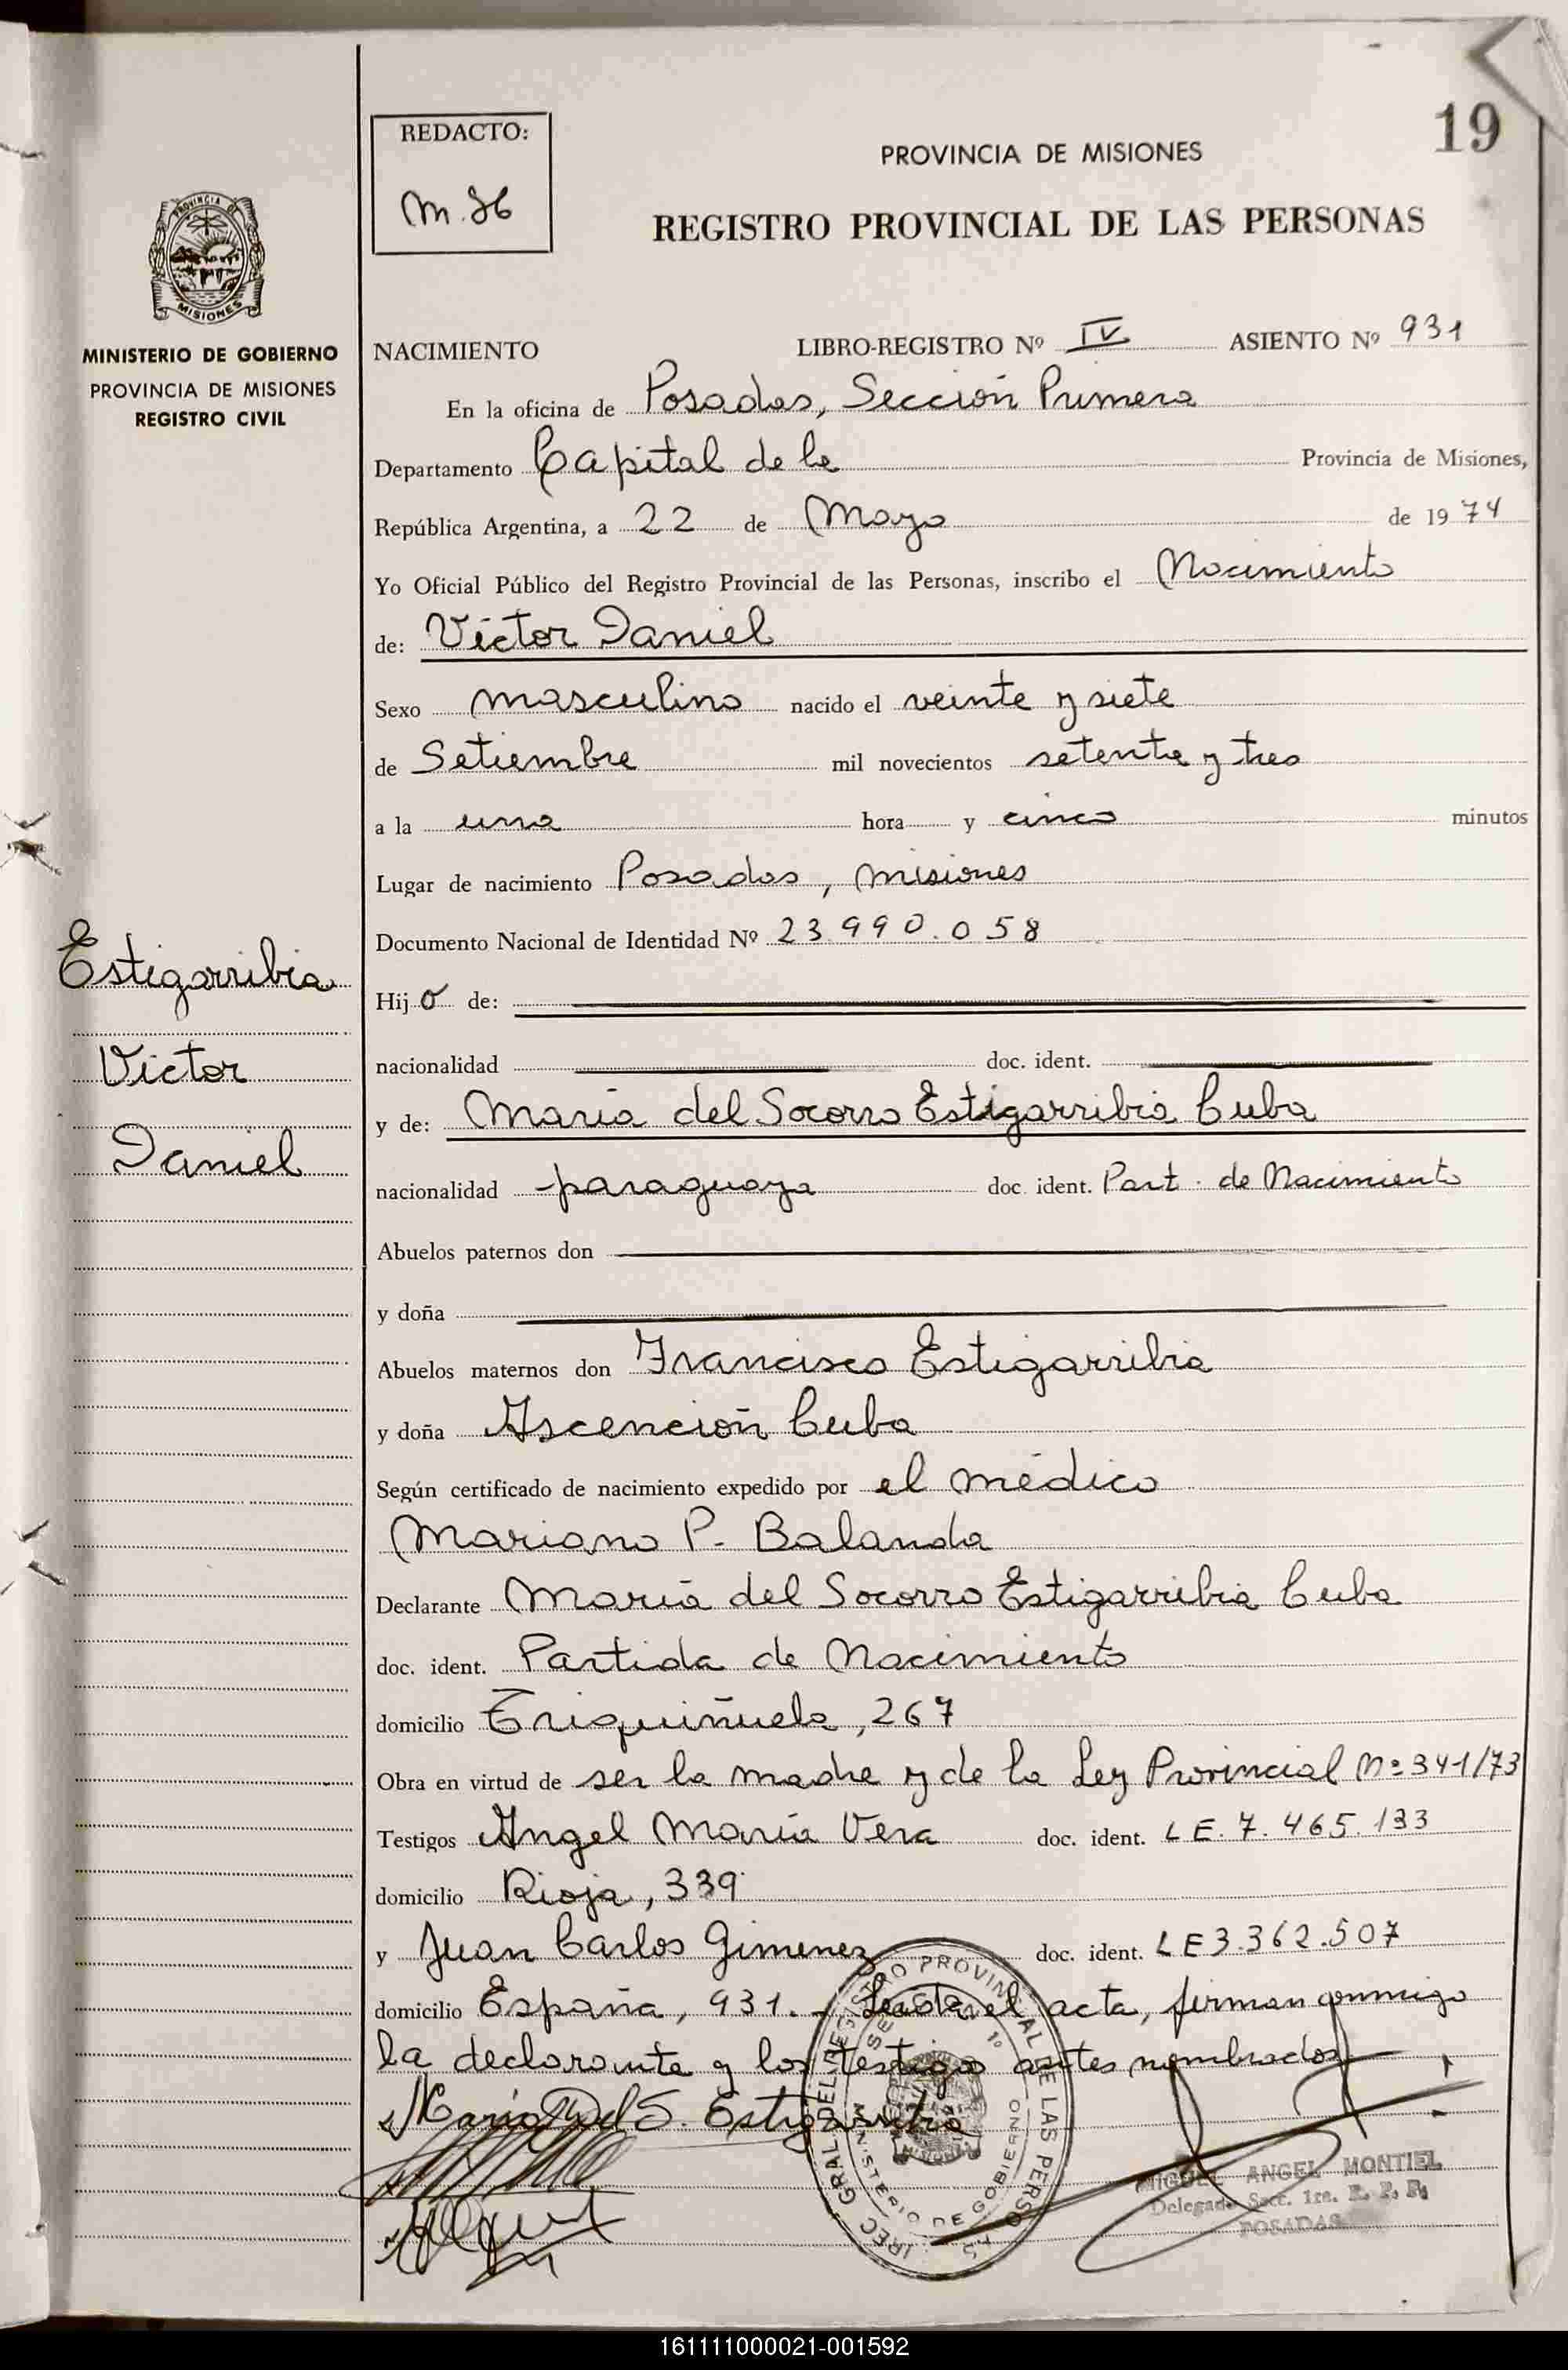 19
REDACTO:
M.86
PROVINCIA DE MISIONES
REGISTRO PROVINCIAL DE LAS PERSONAS
PROVINCIA DE
MISIONES
MINISTERIO DE GOBIERNO
PROVINCIA DE MISIONES
REGISTRO CIVIL
NACIMIENTO LIBRO-REGISTRO Nº IV ASIENTO Nº 931
En la oficina de Posadas, Sección Primera
Departamento Capital de la Provincia de Misiones,
República Argentina, a 22 de Mayo de 1974
Yo Oficial Público del Registro Provincial de las Personas, inscribo el Nacimiento
de: Víctor Daniel
Sexo masculino nacido el veinte y siete
de Setiembre mil novecientos setenta y tres
a la una hora y cinco minutos
Lugar de nacimiento Posadas, Misiones
Documento Nacional de Identidad Nº 23.990.058
Hijo de:
nacionalidad doc. ident.
y de: María del Socorro Estigarribia Cuba
nacionalidad paraguaya doc. ident. Part. de Nacimiento
Abuelos paternos don
y doña
Abuelos maternos don Francisco Estigarribia
y doña Ascención Cuba
Según certificado de nacimiento expedido por el médico
Mariano P. Balanda
Declarante María del Socorro Estigarribia Cuba
doc. ident. Partida de Nacimiento
domicilio Triquiñuela, 267
Obra en virtud de ser la madre y de la Ley Provincial Nº 341/73
Testigos Angel María Vera doc. ident. LE. 7.465.133
domicilio Rioja, 339
y Juan Carlos Gimenez doc. ident. LE 3.362.507
domicilio España, 931. - Leída el acta, firman conmigo
la declarante y los testigos antes nombrados.
María Del S. Estigarribia
Estigarribia
Víctor
Daniel
DIREC. GRAL. DEL REGISTRO PROVINCIAL DE LAS PERSONAS
MINISTERIO DE GOBIERNO
MIGUEL ANGEL MONTIEL
Delegado Secc. 1ra. R. P. P.
POSADAS
161111000021-001592